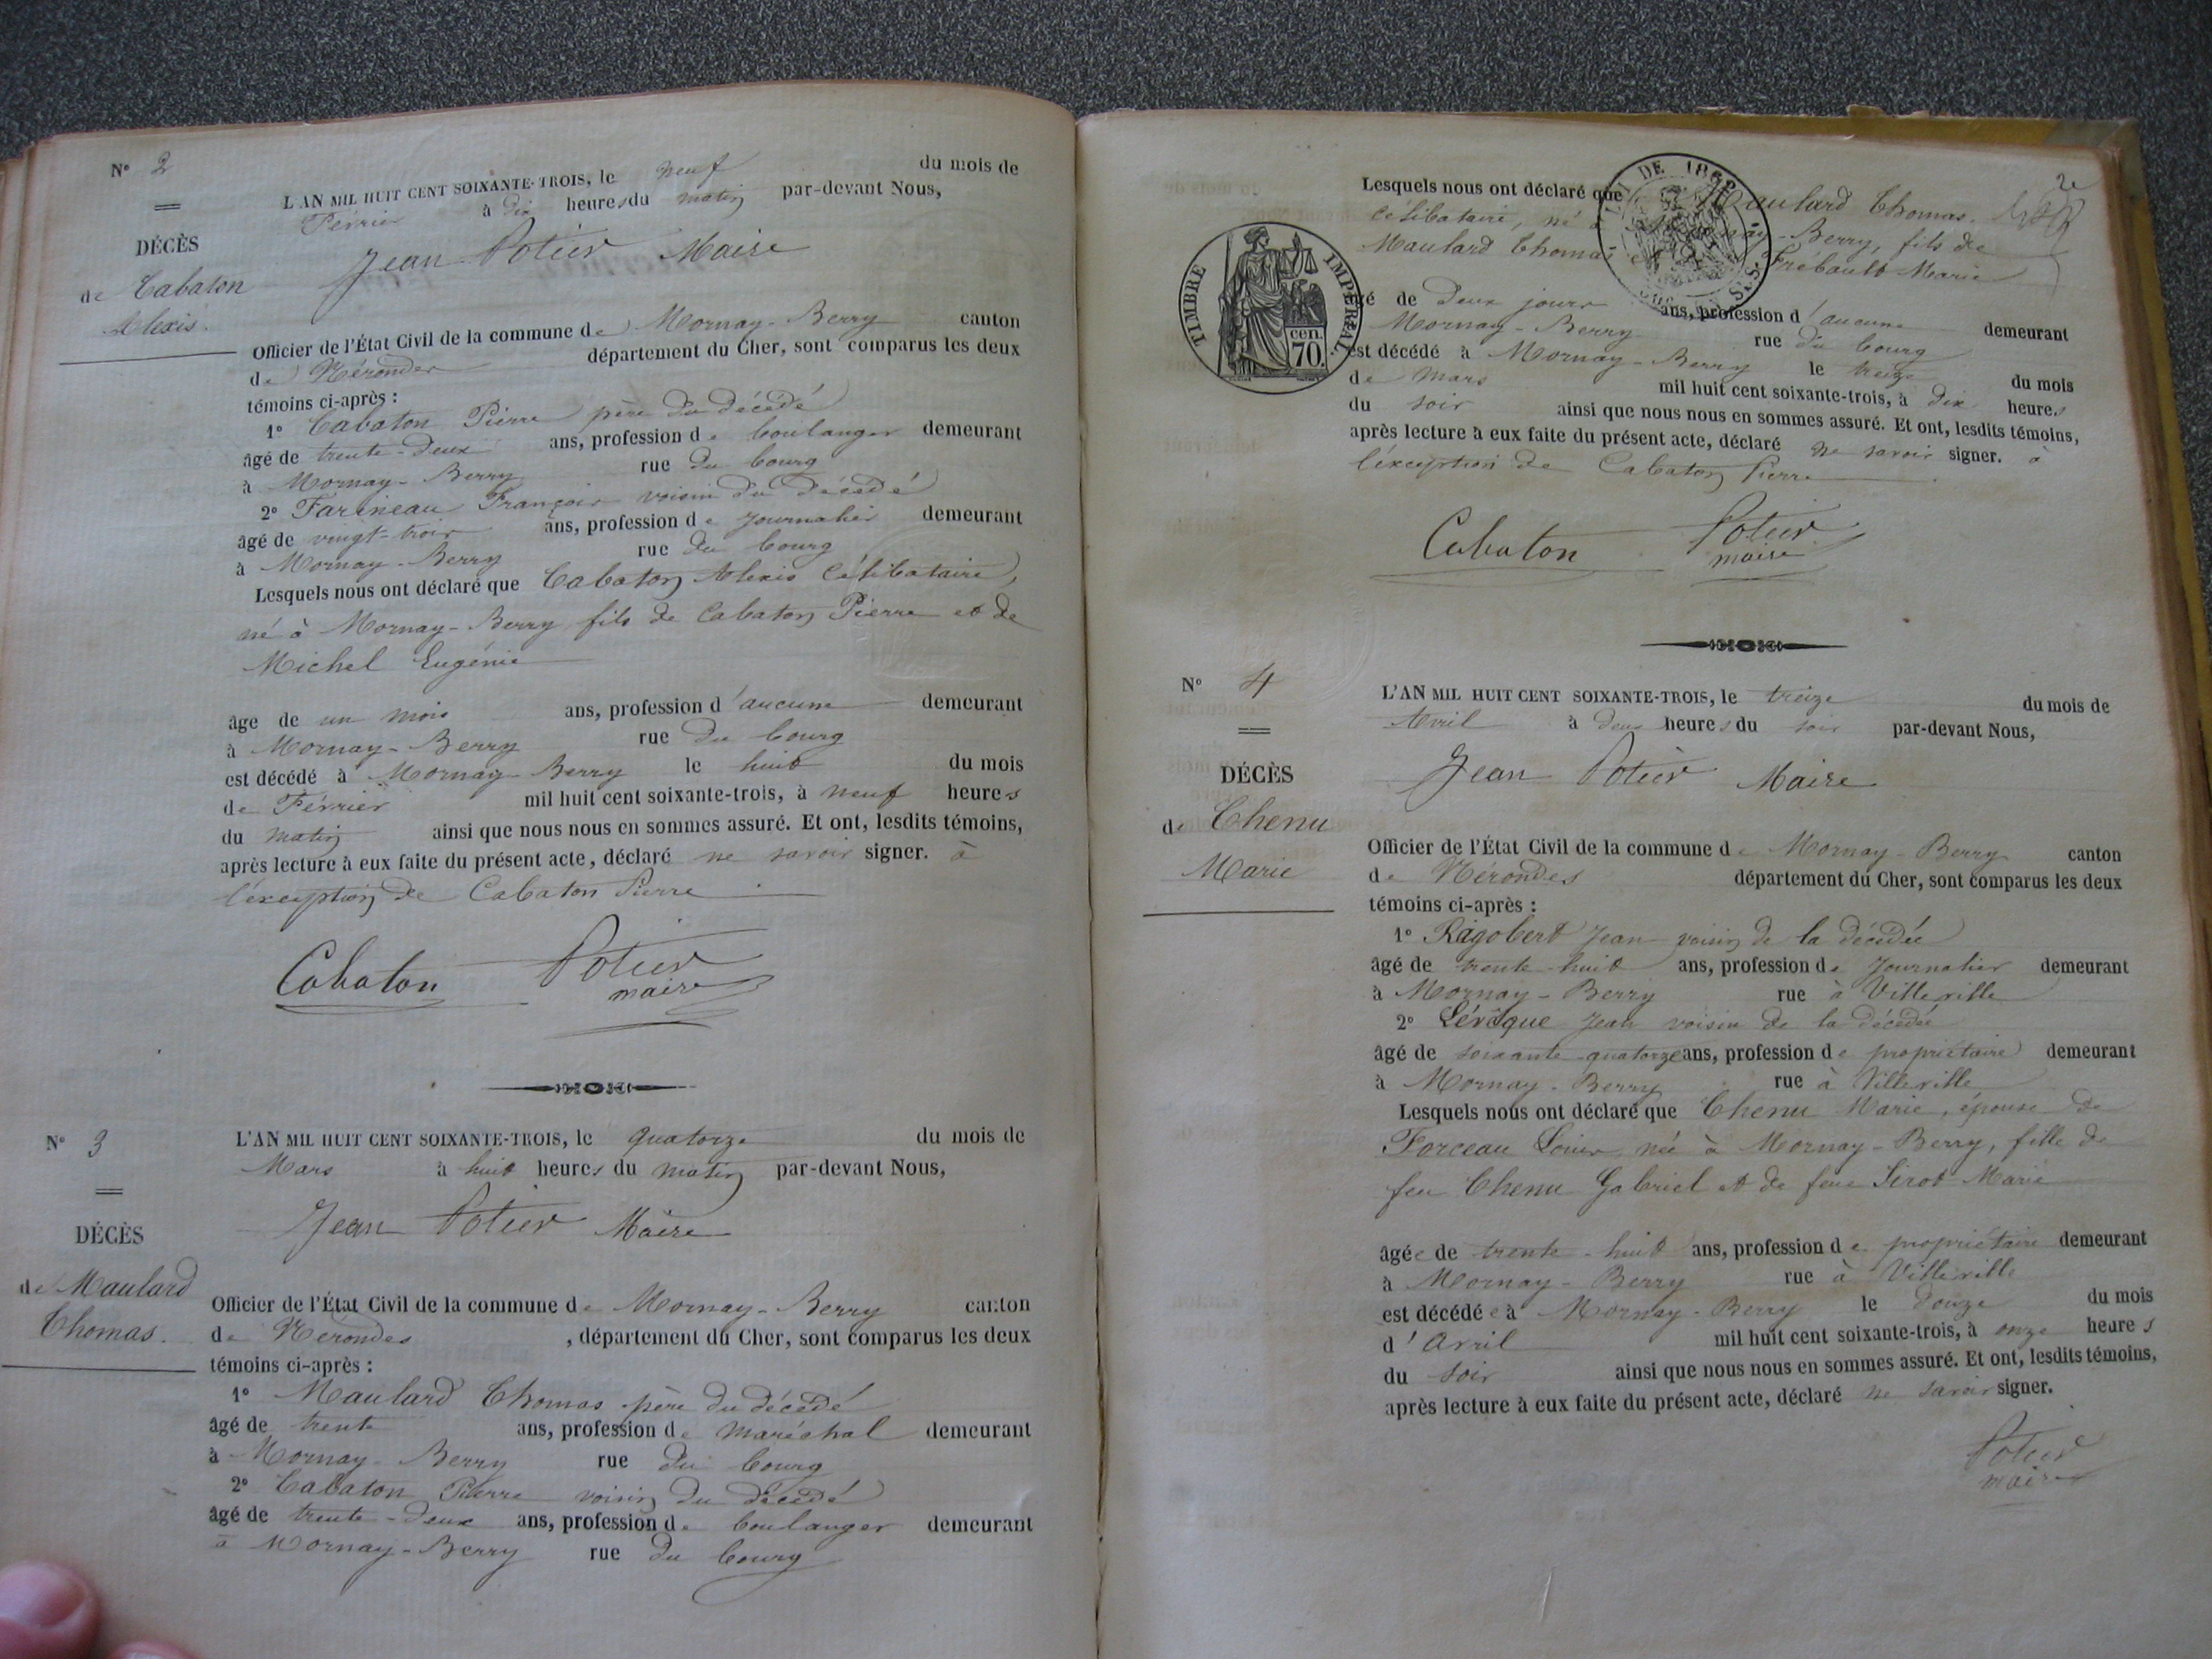 N° 2
DÉCÈS
de Cabaton
Alexis.
L'AN MIL HUIT CENT SOIXANTE-TROIS, le neuf du mois de
Février à dix heures du matin par-devant Nous,
Jean Potier Maire
Officier de l'État Civil de la commune de Mornay-Berry canton
de Nérondes département du Cher, sont comparus les deux
témoins ci-après :
1° Cabaton Pierre père du décédé
âgé de trente-deux ans, profession de boulanger demeurant
à Mornay-Berry rue du bourg
2° Farineau François voisin du décédé
âgé de vingt-trois ans, profession de journalier demeurant
à Mornay-Berry rue du bourg
Lesquels nous ont déclaré que Cabaton Alexis célibataire,
né à Mornay-Berry fils de Cabaton Pierre et de
Michel Eugénie
âgé de un mois ans, profession d'aucune demeurant
à Mornay-Berry rue du bourg
est décédé à Mornay-Berry le huit du mois
de Février mil huit cent soixante-trois, à neuf heures
du matin ainsi que nous nous en sommes assuré. Et ont, lesdits témoins,
après lecture à eux faite du présent acte, déclaré ne savoir signer. à
l'éxception de Cabaton Pierre
Cabaton Potier
maire
N° 3
DÉCÈS
de Maulard
Thomas.
L'AN MIL HUIT CENT SOIXANTE-TROIS, le quatorze du mois de
Mars à huit heures du matin par-devant Nous,
Jean Potier Maire
Officier de l'État Civil de la commune de Mornay-Berry canton
de Nérondes, département du Cher, sont comparus les deux
témoins ci-après :
1° Maulard Thomas père du décédé
âgé de trente ans, profession de maréchal demeurant
à Mornay-Berry rue du bourg
2° Cabaton Pierre voisin du décédé
âgé de trente-deux ans, profession de boulanger demeurant
à Mornay-Berry rue du bourg
2e
Lesquels nous ont déclaré que Maulard Thomas.
célibataire, né à Mornay-Berry, fils de
Maulard Thomas et Frébault Marie
LOI DE 1862
TIMBRE IMPÉRIAL
70 cen.
âgé de deux jours ans, profession d'aucune demeurant
Mornay-Berry rue du bourg
est décédé à Mornay-Berry le treize du mois
de mars mil huit cent soixante-trois, à dix heures
du soir ainsi que nous nous en sommes assuré. Et ont, lesdits témoins,
après lecture à eux faite du présent acte, déclaré ne savoir signer. à
l'éxception de Cabaton Pierre
Cabaton Potier
maire
N° 4
DÉCÈS
de Chenu
Marie
L'AN MIL HUIT CENT SOIXANTE-TROIS, le treize du mois de
Avril à deux heures du soir par-devant Nous,
Jean Potier Maire
Officier de l'État Civil de la commune de Mornay-Berry canton
de Nérondes département du Cher, sont comparus les deux
témoins ci-après :
1° Ragobert Jean voisin de la décédée
âgé de trente-huit ans, profession de journalier demeurant
à Mornay-Berry rue à Villeville
2° Lévêque Jean voisin de la décédée
âgé de soixante-quatorze ans, profession de propriétaire demeurant
à Mornay-Berry rue à Villeville
Lesquels nous ont déclaré que Chenu Marie, épouse de
Forceau Louis née à Mornay-Berry, fille de
feu Chenu Gabriel et de feue Sirot Marie
âgée de trente-huit ans, profession de propriétaire demeurant
à Mornay-Berry rue à Villeville
est décédée à Mornay-Berry le douze du mois
d'Avril mil huit cent soixante-trois, à onze heures
du soir ainsi que nous nous en sommes assuré. Et ont, lesdits témoins,
après lecture à eux faite du présent acte, déclaré ne savoir signer.
Potier
maire